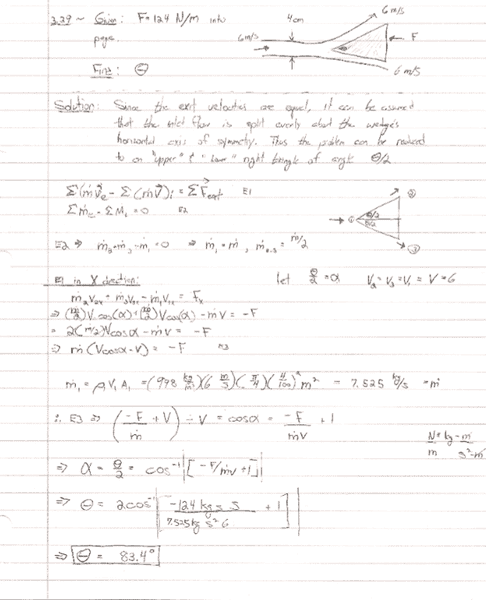 3.39 ~ Given: F=124 N/m into
page.
4cm
6 m/s
6 m/s
F
6 m/s
Find: Θ
Solution: Since the exit velocities are equal, it can be assumed
that the inlet flow is split evenly about the wedge's
horizontal axis of symmetry. Thus the problem can be reduced
to an "upper" & "lower" right triangle of angle Θ/2.
Σ(ṁV⃗)e - Σ(ṁV⃗)i = ΣF⃗ext E1
Σṁe - Σṁi = 0 E2
① Θ/2 Θ/2 ② ③
E2 ⇒ ṁ2+ṁ3-ṁ1 = 0 ⇒ ṁ1 = ṁ, ṁ2,3 = ṁ/2
E1 in X direction: let Θ/2 = α V2 = V3 = V1 = V = 6
ṁ2V2x + ṁ3V3x - ṁ1V1x = Fx
⇒ (ṁ/2)Vcos(α)+(ṁ/2)Vcos(α) - ṁV = -F
= 2(ṁ/2)Vcosα - ṁV = -F
⇒ ṁ(Vcosα - V) = -F E3
ṁ1 = ρ1V1A1 = (998 kg/m³)(6 m/s)(π/4)(4/100)² m² = 7.525 kg/s = ṁ
∴ E3 ⇒ (-F/ṁ + V) ÷ V = cosα = -F/ṁV + 1
N/m = kg-m/s²-m
⇒ α = Θ/2 = cos⁻¹|[-F/ṁV + 1]|
⇒ Θ = 2cos⁻¹|[-124 kg s s / 7.525 kg s² 6 + 1]|
⇒ Θ = 83.4°